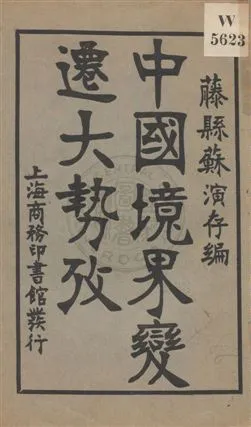 W
5623
藤縣蘇演存編
中國境界變
遷大勢攷
上海商務印書館發行